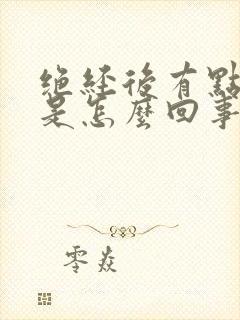 絕經後有點
是怎麼回事
零焱